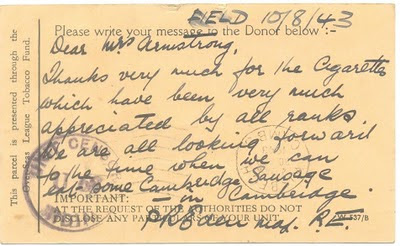 FIELD 10/8/43
Please write your message to the Donor below :-
Dear Mrs Armstrong,
Thanks very much for the Cigarettes
which have been very much
appreciated by all ranks.
We are all looking forward
to the time when we can
eat some Cambridge Sausage
- in Cambridge.
IMPORTANT:
AT THE REQUEST OF THE AUTHORITIES DO NOT
DISCLOSE ANY PARTICULARS OF YOUR UNIT.
Maj. R.E.
537/B
This parcel is presented through the
Overseas League Tobacco Fund.